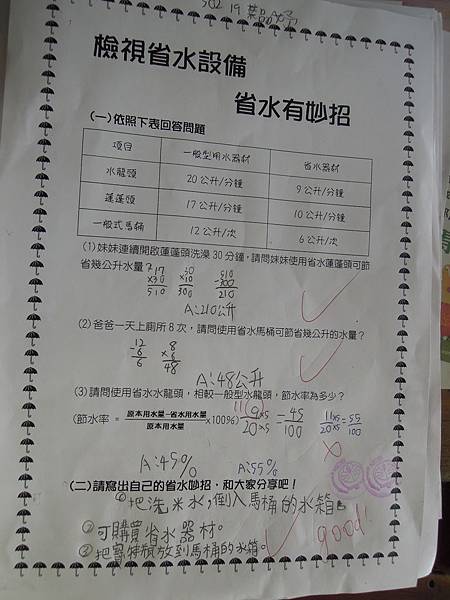 50219
檢視省水設備
省水有妙招
(一)依照下表回答問題
項目 一般型用水器材 省水器材
水龍頭 20公升/分鐘 9公升/分鐘
蓮蓬頭 17公升/分鐘 10公升/分鐘
一般式馬桶 12公升/次 6公升/次
(1)妹妹連續開啟蓮蓬頭洗澡30分鐘,請問妹妹使用省水蓮蓬頭可節
省幾公升水量?
17 ×30 510
30 ×10 300
510 -300 210
A:210公升
(2)爸爸一天上廁所8次,請問使用省水馬桶可節省幾公升的水量?
12 -6 6
8 ×6 48
A:48公升
(3)請問使用省水水龍頭,相較一般型水龍頭,節水率為多少?
(節水率 = 原本用水量-省水用水量/原本用水量 x100%) 11 9×5/20×5 = 45/100 11×5/20×5 = 55/100
A:45% A:55%
(二)請寫出自己的省水妙招,和大家分享吧!
①把洗米水,倒入馬桶的水箱。
②可購買省水器材。
③把寶特瓶放到馬桶的水箱。
good!